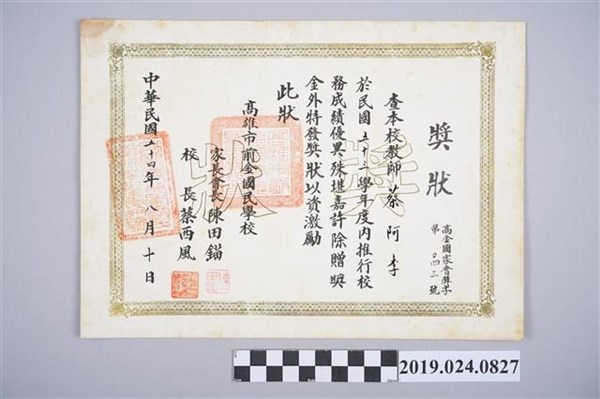 獎狀
高金國家會獎字
第〇四三號
查本校教師蔡阿李
於民國五十三學年度內推行校
務成績優異殊堪嘉許除贈獎
金外特發獎狀以資激勵
此狀
高雄市前金國民學校
家長會長陳田錨
校長蔡西風
中華民國五十四年八月十日
獎狀
2019.024.0827